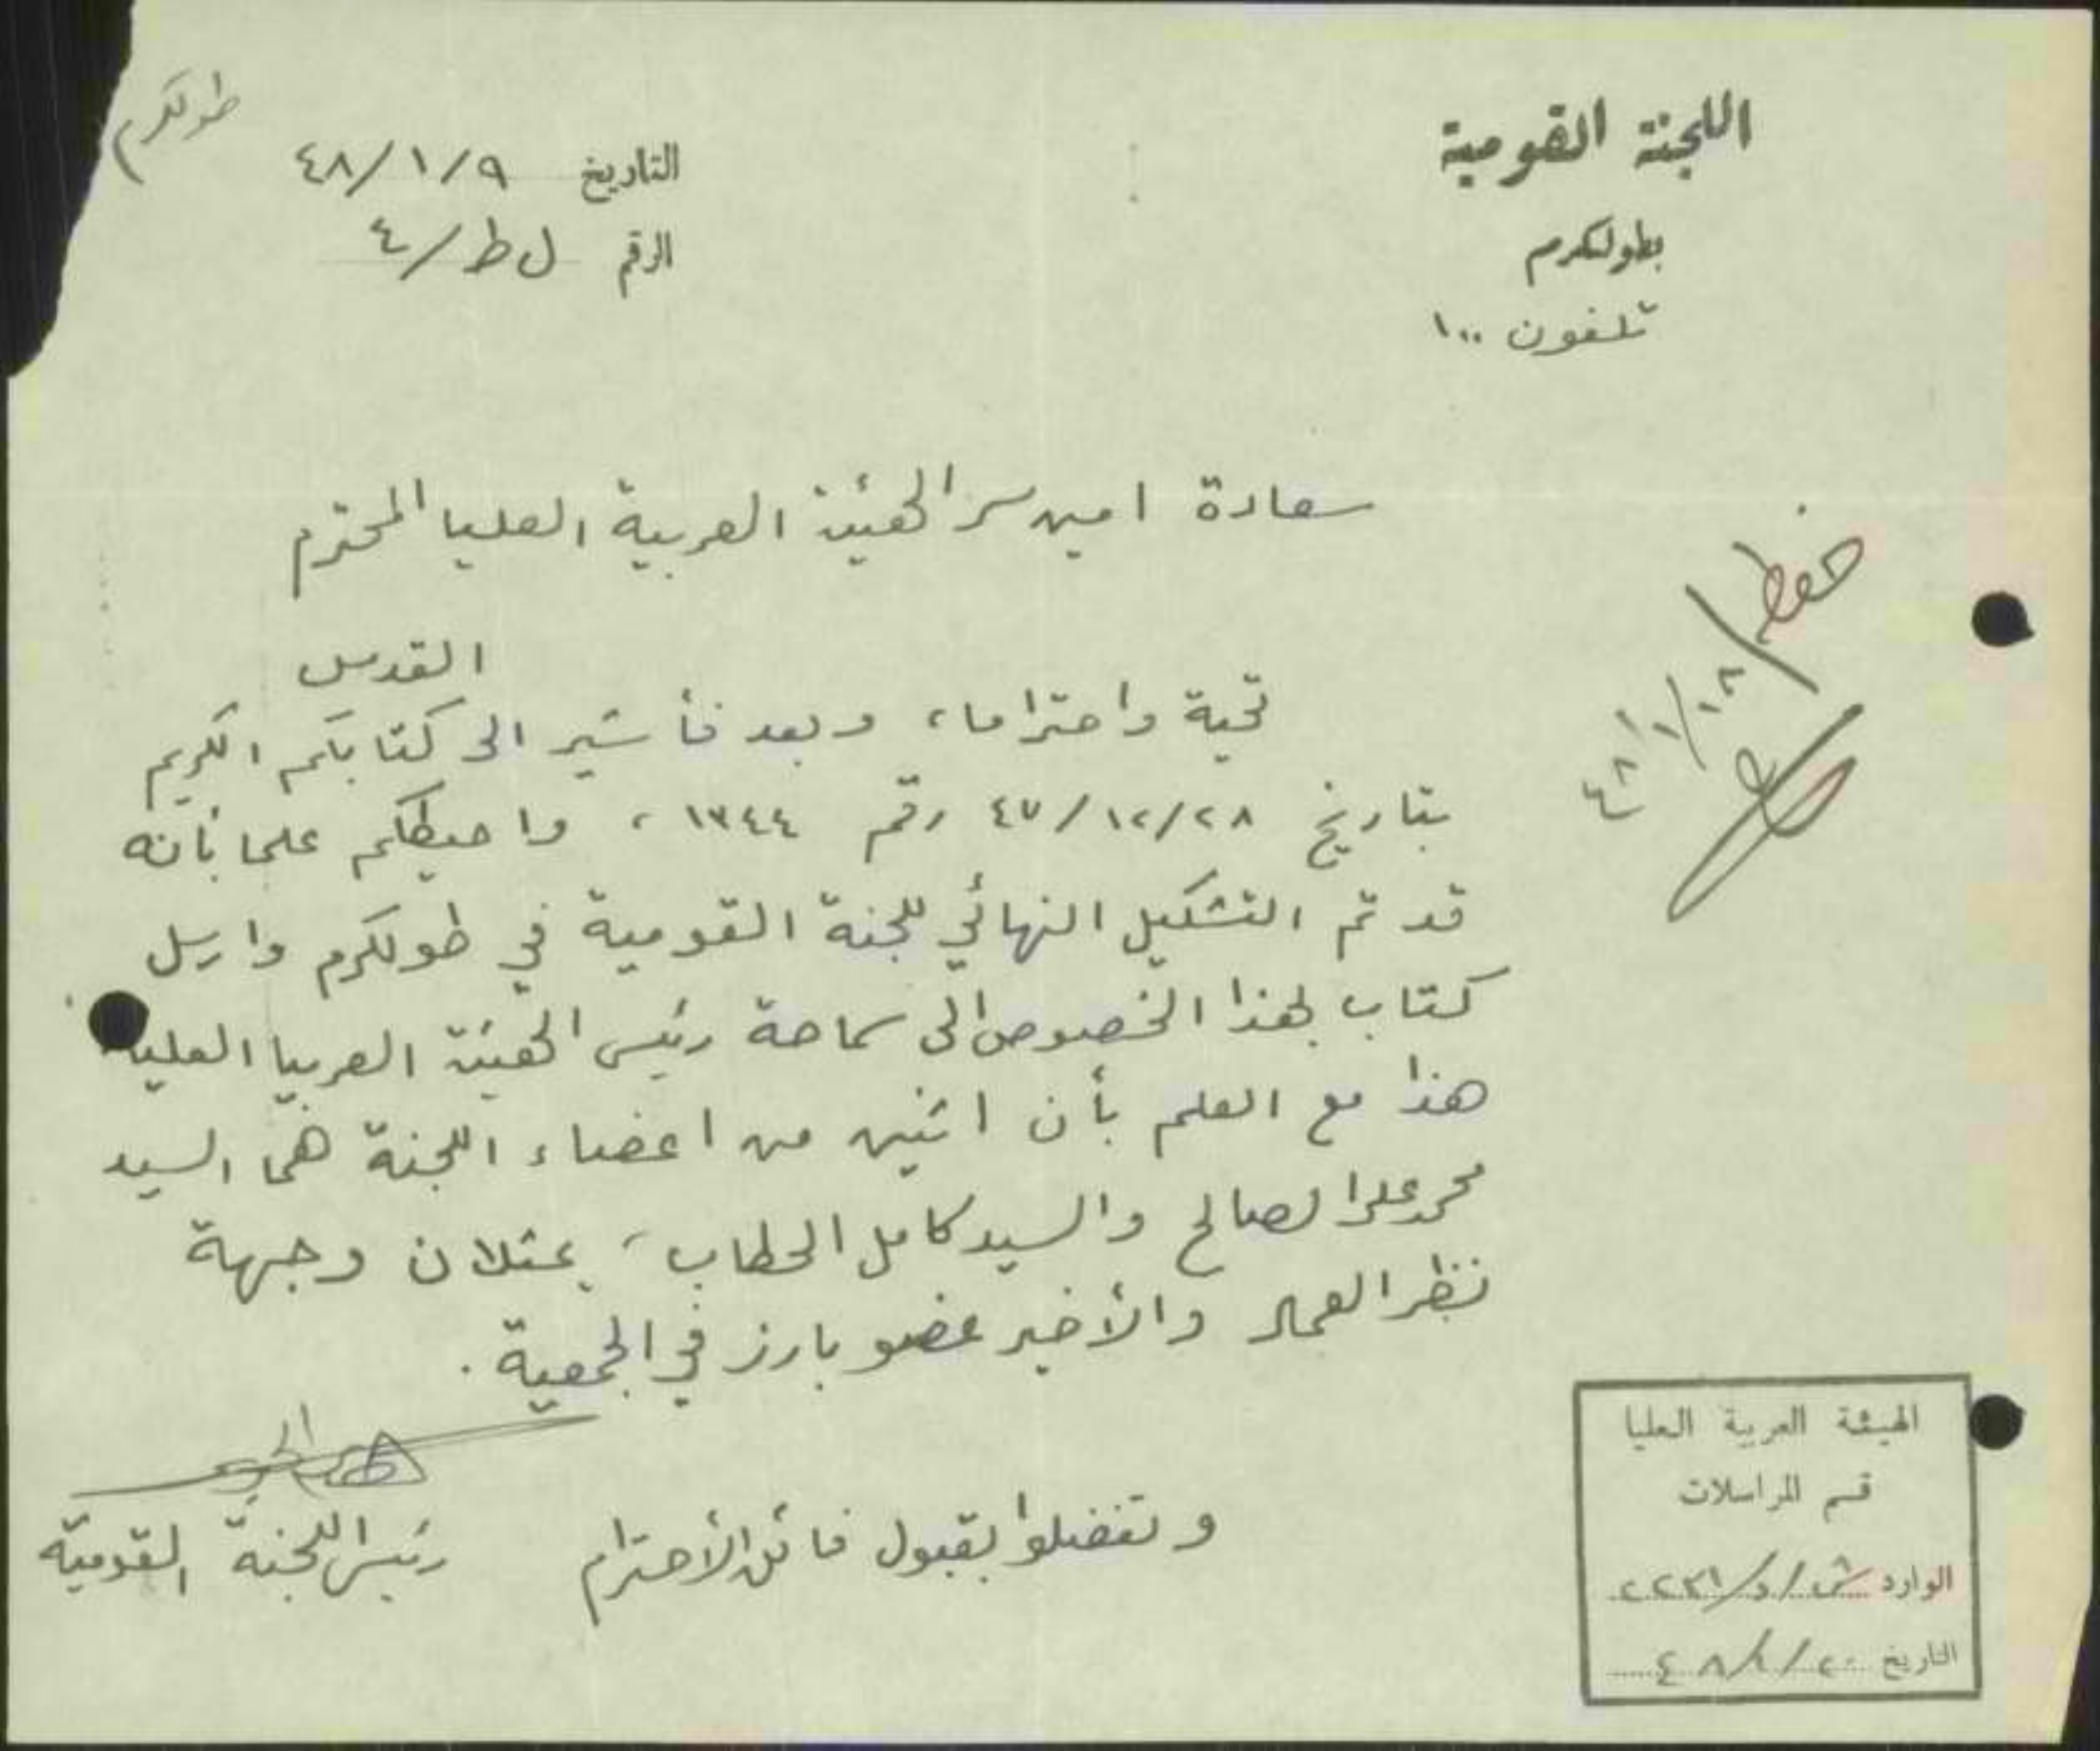 طولكرم
اللجنة القومية
بطولكرم
تلفون ١٠٠
التاريخ ٤٨/١/٩
الرقم ل ط/٤
سعادة امين سر الهيئة العربية العليا المحترم
القدس
تحية واحتراما، وبعد فأشير الى كتابكم الكريم
بتاريخ ٤٧/١٢/٢٨ رقم ١٧٤٤، واحيطكم علما بأنه
قد تم التشكيل النهائي للجنة القومية في طولكرم وارسل
كتاب بهذا الخصوص الى سماحة رئيس الهيئة العربيا العليا
هذا مع العلم بأن اثنين من اعضاء اللجنة هما السيد
محمد علي الصالح والسيد كامل الحطاب، يمثلان وجهة
نظر العمال والأخير عضو بارز في الجمعية.
وتفضلوا بقبول فائق الأحترام
رئيس اللجنة القومية
حفظ
٤٨/١/١٨
الهيئة العربية العليا
قسم المراسلات
الوارد ش/د/٢٢٣١
التاريخ ٤٨/١/٢٠